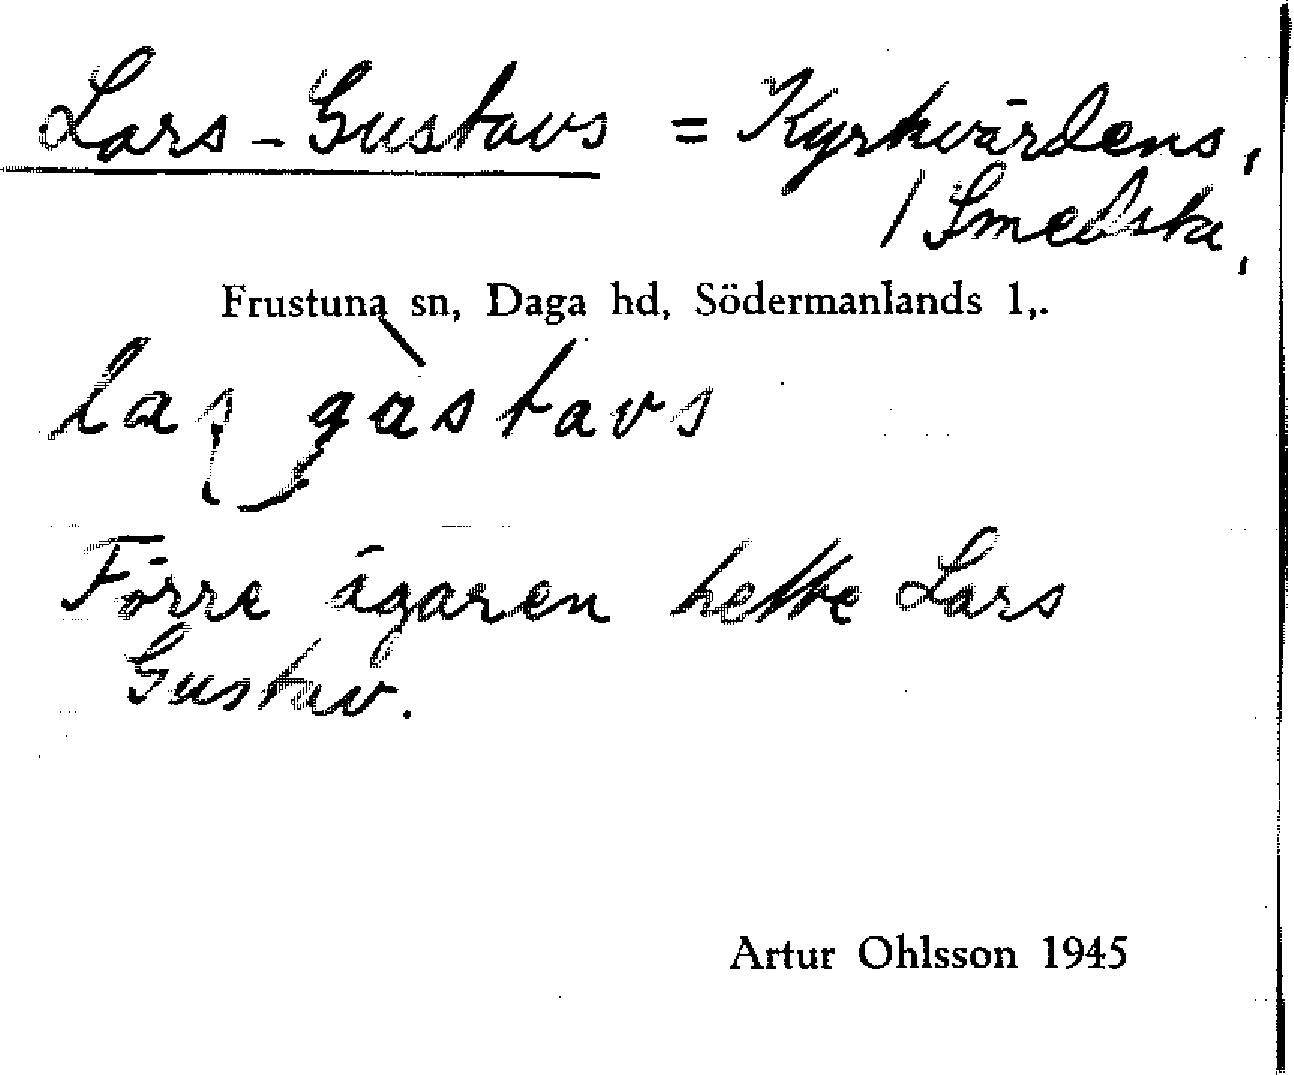 Lars-Gustavs = Kyrkvärdens,
/ Smedska,
Frustuna sn, Daga hd, Södermanlands l,.
las gàstavs
Förre ägaren hette Lars
Gustav.
Artur Ohlsson 1945